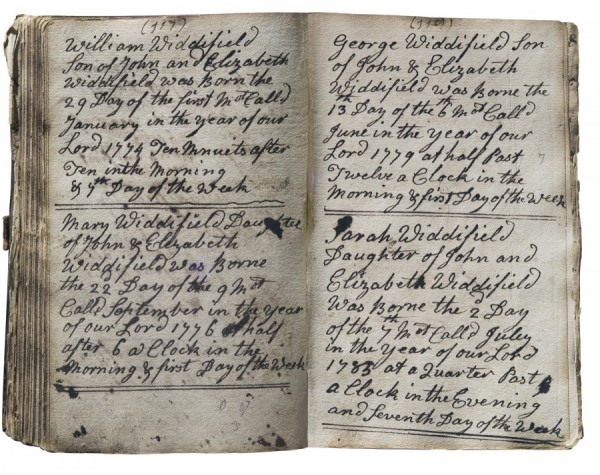 (117)
William Widdifield
Son of John and Elizabeth
Widdifield was Born the
29 Day of the first Mot Calld
January in the year of our
Lord 1774 Ten Mnuets after
Ten in the Morning
& 7th Day of the Week
Mary Widdifield Daughter
of John & Elizabeth
Widdifield was Borne
the 22 Day of the 9 Mot
Calld September in the Year
of our Lord 1776 at half
after 6 a Clock in the
Morning & first Day of the Week
(118)
George Widdifield Son
of John & Elizabeth
Widdifield was Borne the
13th Day of the 6th Mot Calld
June in the Year of our
Lord 1779 at half Past
Twelve a Clock in the
Morning & first Day of the Week
Sarah Widdifield
Daughter of John and
Elizabeth Widdifield
Was Borne the 2d Day
of the 7th Mot Calld Juley
in the Year of our Lord
at a Quarter Past
a Clock in the Evening
and Seventh Day of the Week